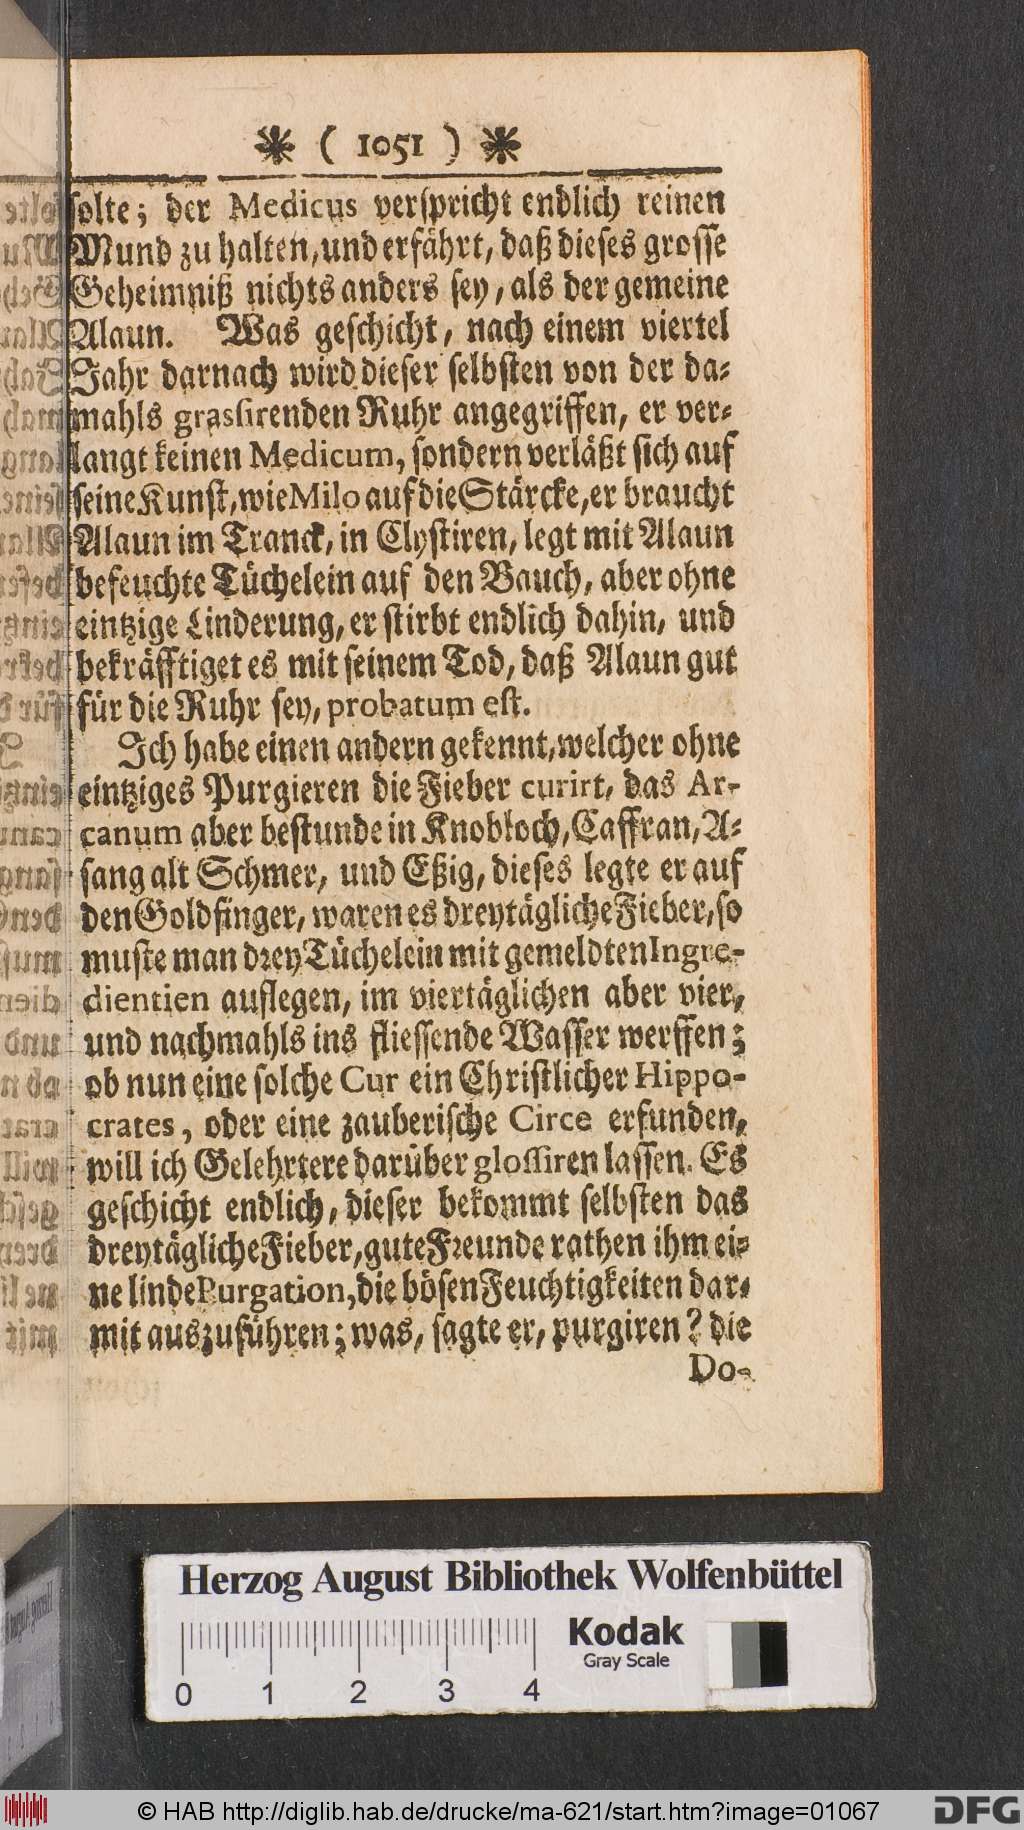 ❋ ( 1051 ) ❋
solte; der Medicus verspricht endlich reinen
Mund zu halten, und erfährt, daß dieses grosse
Geheimniß nichts anders sey, als der gemeine
Alaun. Was geschicht, nach einem viertel
Jahr darnach wird dieser selbsten von der da-
mahls grassirenden Ruhr angegriffen, er ver-
langt keinen Medicum, sondern verläßt sich auf
seine Kunst, wie Milo auf die Stärcke, er braucht
Alaun im Tranck, in Clystiren, legt mit Alaun
befeuchte Tüchelein auf den Bauch, aber ohne
eintzige Linderung, er stirbt endlich dahin, und
bekräfftiget es mit seinem Tod, daß Alaun gut
für die Ruhr sey, probatum est.
Ich habe einen andern gekennt, welcher ohne
eintziges Purgieren die Fieber curirt, das Ar-
canum aber bestunde in Knobloch, Saffran, A-
sang alt Schmer, und Eßig, dieses legte er auf
den Goldfinger, waren es dreytägliche Fieber, so
muste man drey Tüchelein mit gemeldten Ingre-
dientien auflegen, im viertäglichen aber vier,
und nachmahls ins fliessende Wasser werffen;
ob nun eine solche Cur ein Christlicher Hippo-
crates, oder eine zauberische Circe erfunden,
will ich Gelehrtere darüber glossiren lassen. Es
geschicht endlich, dieser bekommt selbsten das
dreytägliche Fieber, gute Freunde rathen ihm ei-
ne linde Purgation, die bösen Feuchtigkeiten dar-
mit auszuführen; was, sagte er, purgiren? die
Do-
Herzog August Bibliothek Wolfenbüttel
0 1 2 3 4
Kodak
Gray Scale
© HAB http://diglib.hab.de/drucke/ma-621/start.htm?image=01067
DFG